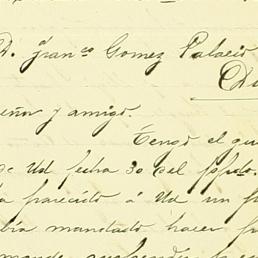 D. Franco Gomez Palacio
Du
eñor y amigo.
Tengo el gu
de Ud fecha 30 del ppdo.
a parecido á Ud un p
bia mandado hacer